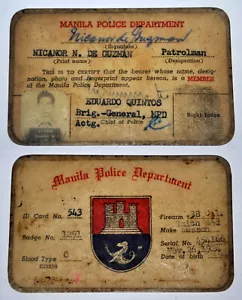 MANILA POLICE DEPARTMENT
Nicanor de Guzman
(Signature)
NICANOR N. DE GUZMAN Patrolman
(Print name) (Designation)
THIS IS TO CERTIFY that the bearer whose name, desig-
nation, photo and fingerprint appear hereon, is a MEMBER
of the Manila Police Department.
EDUARDO QUINTOS
Brig.-General, MPD
Actg. Chief of Police
Right Index
Manila Police Department
ID Card No. 543
Badge No. 1291
Blood Type O
Firearm .38
Make
Serial No.
Date of birth